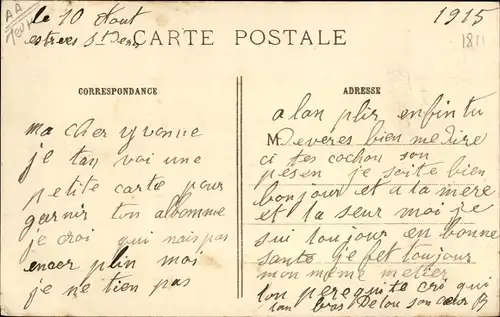 le 10 Aout 1915
estrees St Denis
CARTE POSTALE
CORRESPONDANCE
ma cher yvonne
je tan voi une
petite carte pour
garnir ton albomme
je croi qui nais pas
encor plin moi
je ne tien pas
ADRESSE
a lan plir enfin tu
M Deveres bien me dire
ci tes cochon son
pesen je soite bien
bonjour et a ta mere
et ta seur moi je
sui toujour en bonne
sante je fet toujour
mon meme metier
ton pere qui te cri qui
tan bras De tou son cœur
1811